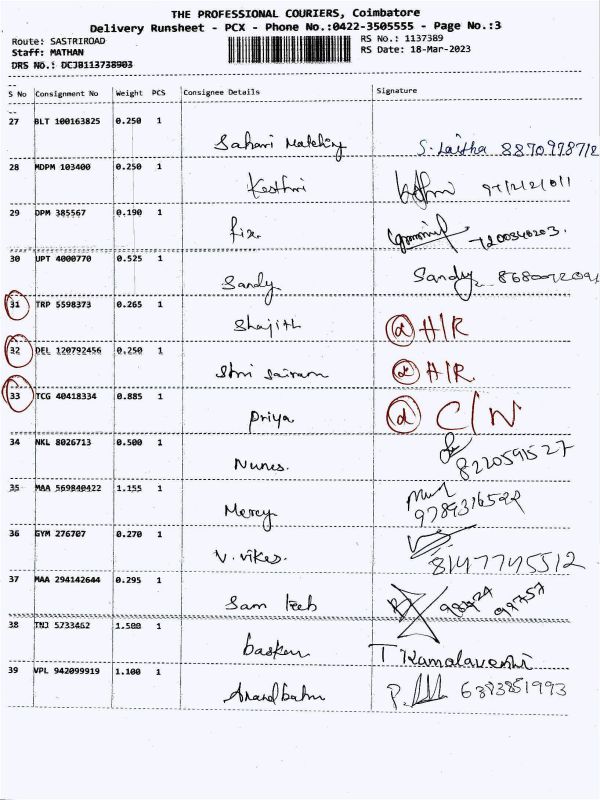 THE PROFESSIONAL COURIERS, Coimbatore
Delivery Runsheet - PCX - Phone No.:0422-3505555 - Page No.:3
Route: SASTRIROAD RS No.: 1137389
Staff: MATHAN RS Date: 18-Mar-2023
DRS No.: DCJB113738903
S No Consignment No Weight PCS Consignee Details Signature
27 BLT 100163825 0.250 1
Sahari Matching S. Laitha 8870978712
28 MDPM 103400 0.250 1
Keethri
29 DPM 385567 0.190 1
fix. 7200340203.
30 UPT 4000770 0.525 1
Sandy Sandy
31 TRP 5598373 0.265 1
Shajith d H/R
32 DEL 120792456 0.250 1
Shri Sairam d H/R
33 TCG 40418334 0.885 1
Priya d C/N
34 NKL 8026713 0.500 1
Nunes. 8220591527
35 MAA 569840422 1.155 1
Mercy 9789316522
36 GYM 276707 0.270 1
V. vikes. 8147745512
37 MAA 294142644 0.295 1
Sam 98424 99757
38 TNJ 5733462 1.500 1
baskar T Kamalaveni
39 VPL 942099919 1.100 1
Anand babu P. 6383851993